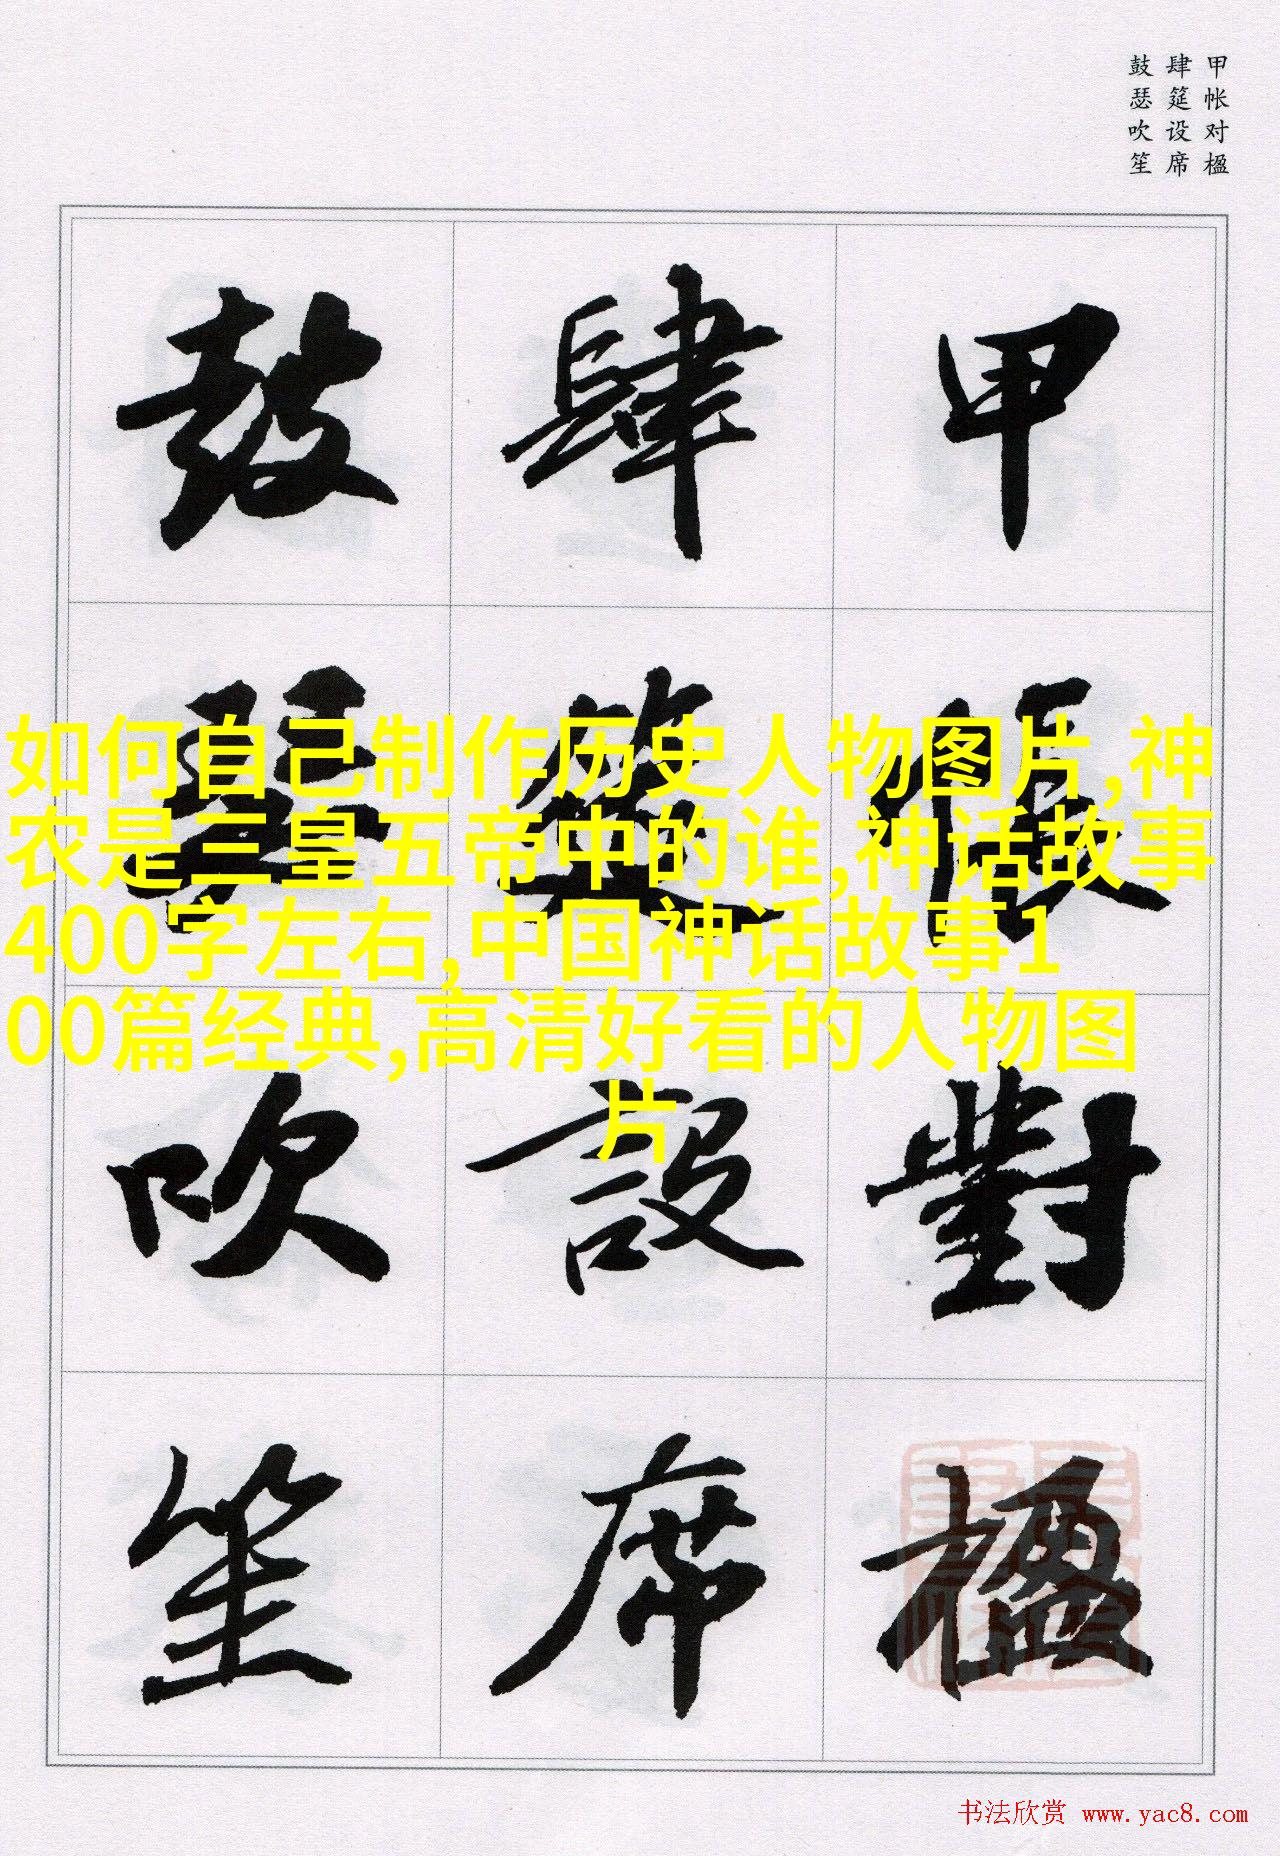 甲帐对楹
肆筵设席
鼓瑟吹笙
甲帳對楹
肆筵設席
鼓瑟吹笙
如何自己制作历史人物图片,神
农是三皇五帝中的谁,神话故事
400字左右,中国神话故事1
00篇经典,高清好看的人物图
片
书法欣赏 www.yac8.com